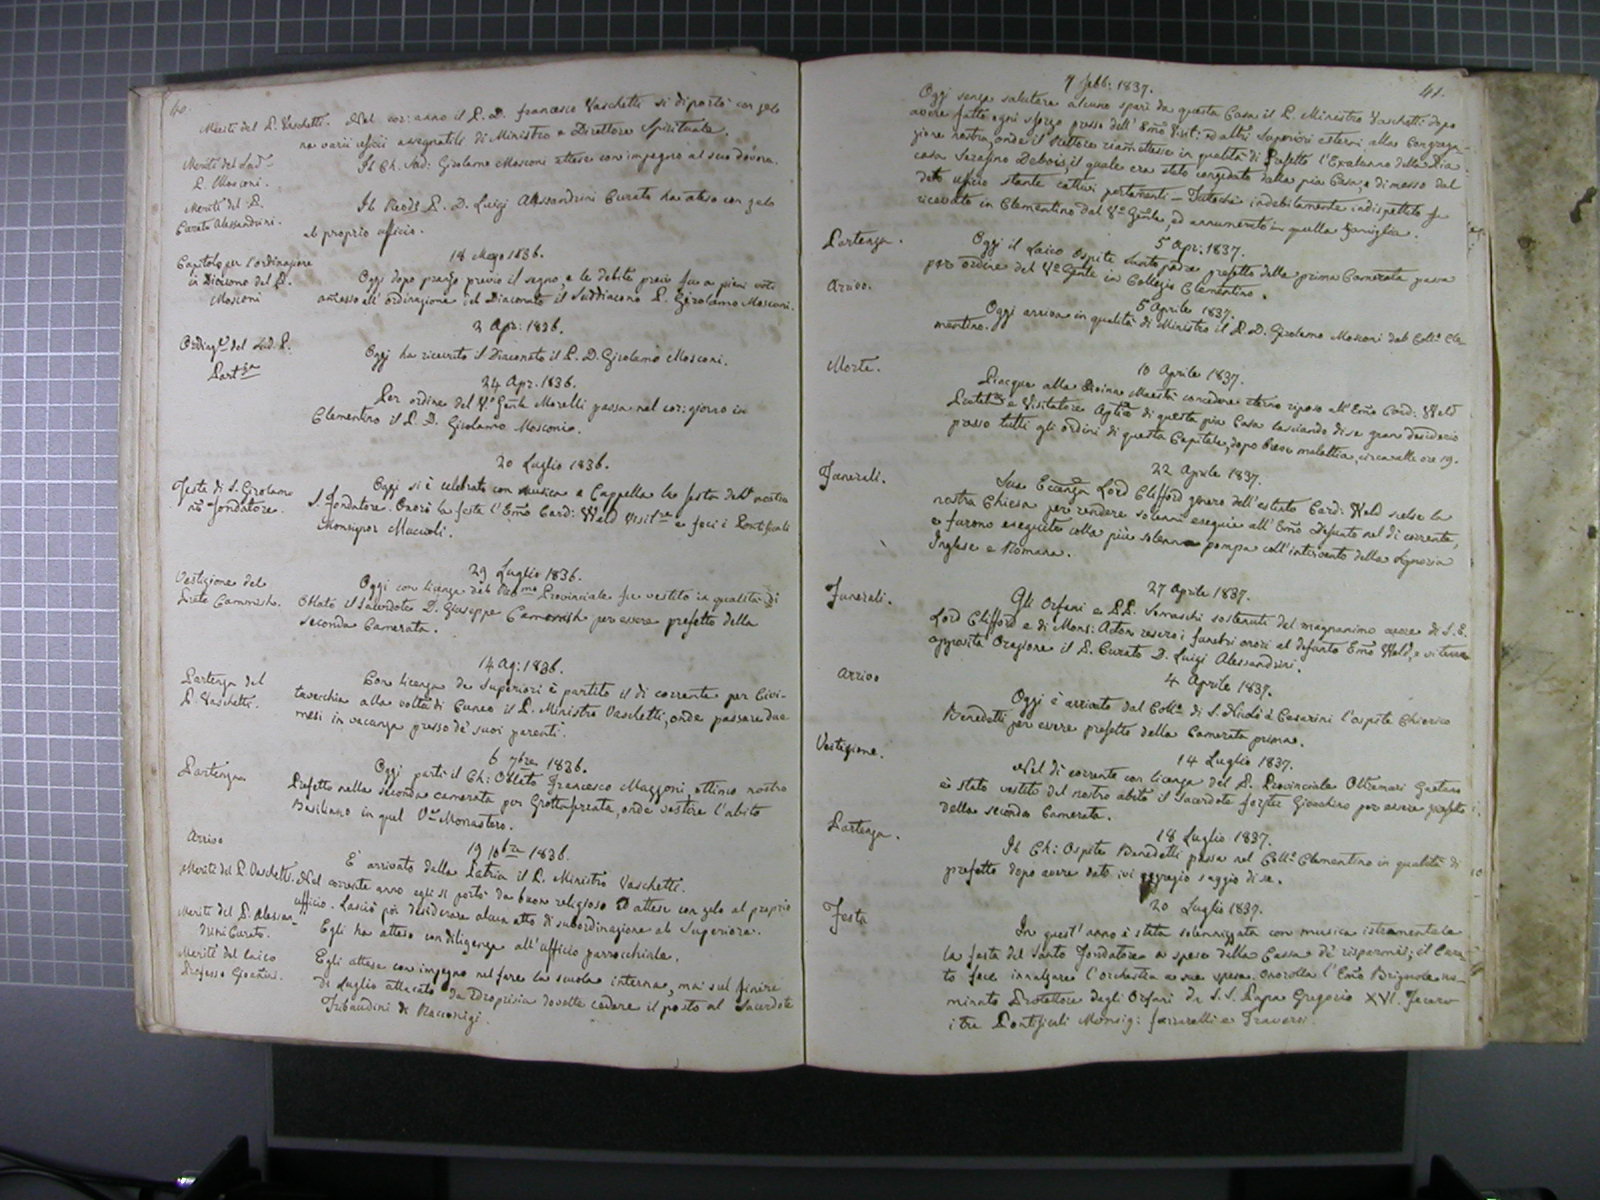 40.
Meriti del P. Vaschetti. Nel cor: anno il P. D. Francesco Vaschetti si diportò con zelo
ne varii ufficii assegnatili di Ministro e Direttore Spirituale.
Meriti del Sud.
P. Mosconi.
Il Ch. Sud: Girolamo Mosconi attese con impegno al suo dovere.
Meriti del P.
Curato Alessandrini.
Il P. D. Luigi Alessandrini Curato ha atteso con zelo
al proprio ufficio.
18 1836.
Capitolo per l'ordinazione
in Diacono del P.
Mosconi
Oggi dopo pranzo previo il segno, e le debite preci fu a pieni voti
ammesso all'ordinazione del Diaconato il Suddiacono P. Girolamo Mosconi.
2 Apr: 1836.
Ordinaz. del Sud. P.
Oggi ha ricevuto il Diaconato il P. D. Girolamo Mosconi.
Partza
24 Apr. 1836.
Per ordine del Vo Genle Morelli passa nel cor: giorno in
Clementino il P. D. Girolamo Mosconi.
20 Luglio 1836.
Festa di S. Girolamo
no fondatore.
Oggi si è celebrata con musica e Cappella la festa del nostro
S. Fondatore. Onorò la festa l'Emo Card: Weld Visitre e fece i Pontificali
Monsignor Muccioli.
29 Luglio 1836.
Vestizione del
Prete
Oggi con licenza del Provinciale fu vestito in qualità di
Oblato il Sacerdote D. Giuseppe per essere prefetto della
seconda Camerata.
14 Ag: 1836.
Partenza del
P. Vaschetti.
Con licenza de Superiori è partito il dì corrente per Civi-
tavecchia alla volta di Cuneo il P. Ministro Vaschetti, onde passare due
mesi in vacanza presso de' suoi parenti.
6 7bre 1836.
Partenza
Oggi partì il Ch: Oblato Francesco Maggoni, ottimo nostro
Prefetto nella seconda camerata per Grottaferrata, onde vestire l'abito
Basiliano in quel Monastero.
19 10bre 1836.
Arrivo
È arrivato dalla Patria il P. Ministro Vaschetti.
Meriti del P. Vaschetti. Nel corrente anno egli si portò da buon religioso ed attese con zelo al proprio
ufficio. Lasciò poi desiderare alcun atto di subordinazione al Superiore.
Meriti del P. Alessan-
drini Curato.
Egli ha atteso con diligenza all'ufficio parrocchiale.
Meriti del laico
Professo
Egli attese con impegno nel fare la scuola interna, ma sul finire
di Luglio attaccato da Idropisia dovette cedere il posto al Sacerdote
Tribaudini di Racconigi.
41.
7 Febb: 1837.
Oggi senza salutare alcuno sparì da questa Casa il P. Ministro Vaschetti dopo
avere fatto ogni sforzo presso dell'Emo Visit: ed altri Superiori esterni alla Congrega-
zione nostra, onde il Rettore riammettesse in qualità di Prefetto l'Exalunno della Pia
casa Serafino Debois, il quale era stato congedato dalla pia Casa, e dimesso dal
detto ufficio stante cattivi portamenti - Tuttochè indebitamente indispettito fu
ricevuto in Clementino dal Vo Genle, ed annumerato in quella famiglia.
5 Apr: 1837.
Partenza.
Oggi il Laico Ospite Santopadre prefetto della prima Camerata passa
per ordine del Vo Genle in Collegio Clementino.
5 Aprile 1837.
Arrivo.
Oggi arriva in qualità di Ministro il P. D. Girolamo Mosconi dal Collo Cle-
mentino.
10 Aprile 1837.
Morte.
Piacque alla Divina Maestà concedere eterno riposo all'Emo Card: Weld
Protetre e Visitatore Aplico di questa pia Casa lasciando di se gran desiderio
presso tutti gli ordini di questa Capitale, dopo breve malattia, circa alle ore 19.
22 Aprile 1837.
Funerali.
Sua Eccenza Lord Clifford genero dell'estinto Card: Weld scelse la
nostra Chiesa per rendere solenni esequie all'Emo Defunto nel dì corrente,
e furono eseguite colla più solenne pompa coll'intervento della Signoria
Inglese e Romana.
27 Aprile 1837.
Funerali.
Gli Orfani e PP. Somaschi sostenuti del magnanimo cuore di S. E.
Lord Clifford e di Mons: Acton resero i funebri onori al defunto Emo Weld, e vi tenne
apposita Orazione il P. Curato D. Luigi Alessandrini.
4 Aprile 1837.
Arrivo
Oggi è arrivato dal Collo di S. Nicolò a Cesarini l'ospite Chierico
Benedetti per essere prefetto della Camerata prima.
14 Luglio 1837.
Vestizione.
Nel dì corrente con licenza del P. Provinciale Oltremari Gaetano
è stato vestito del nostro abito il Sacerdote Gioachino per essere prefetto
della seconda Camerata.
18 Luglio 1837.
Partenza.
Il Ch: Ospite Benedetti passa nel Collo Clementino in qualità di
prefetto dopo avere dato ivi egregio saggio di se.
20 Luglio 1837.
Festa
In quest'anno è stata solennizzata con musica istrumentale
la festa del Santo Fondatore a spese della Cassa de' risparmi; il Cura-
to fece innalzare l'Orchestra a sue spese. Onorolla l'Emo Brignole no-
minato Protettore degli Orfani da S. S. Papa Gregorio XVI. Fecero
i tre Pontificali Monsig: e Traversi.